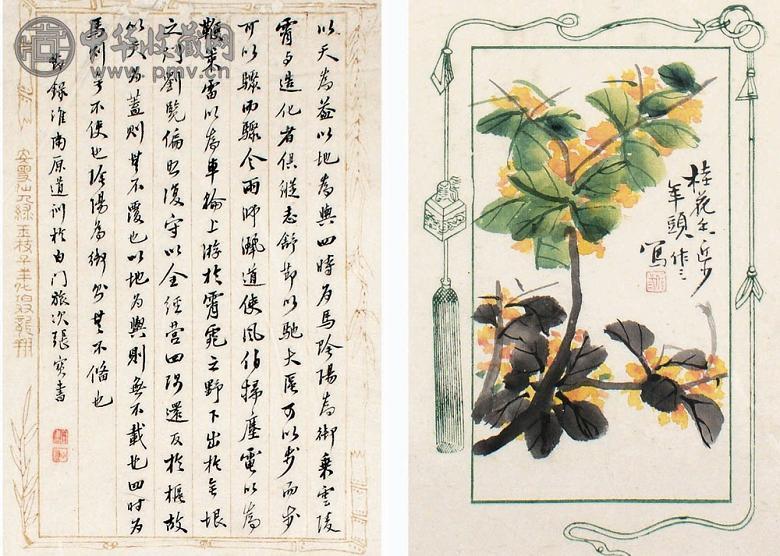 中华收藏网
www.pmv.cn
以天為蓋以地為輿四時為馬陰陽為御乘雲陵
霄与造化者俱縱志舒節以馳大區可以步而步
可以驟而驟令雨師灑道使風伯掃塵電以為
鞭策雷以為車輪上游於霄雿之野下出於無垠
之門劉覽偏照復守以全經營四隅還反於樞故
以天為蓋則無不覆也以地為輿則無不載也四時為
馬則無不使也陰陽為御則無不備也
節錄淮南原道訓於白門旅次張書
桂花香近少
年頭作之
寫